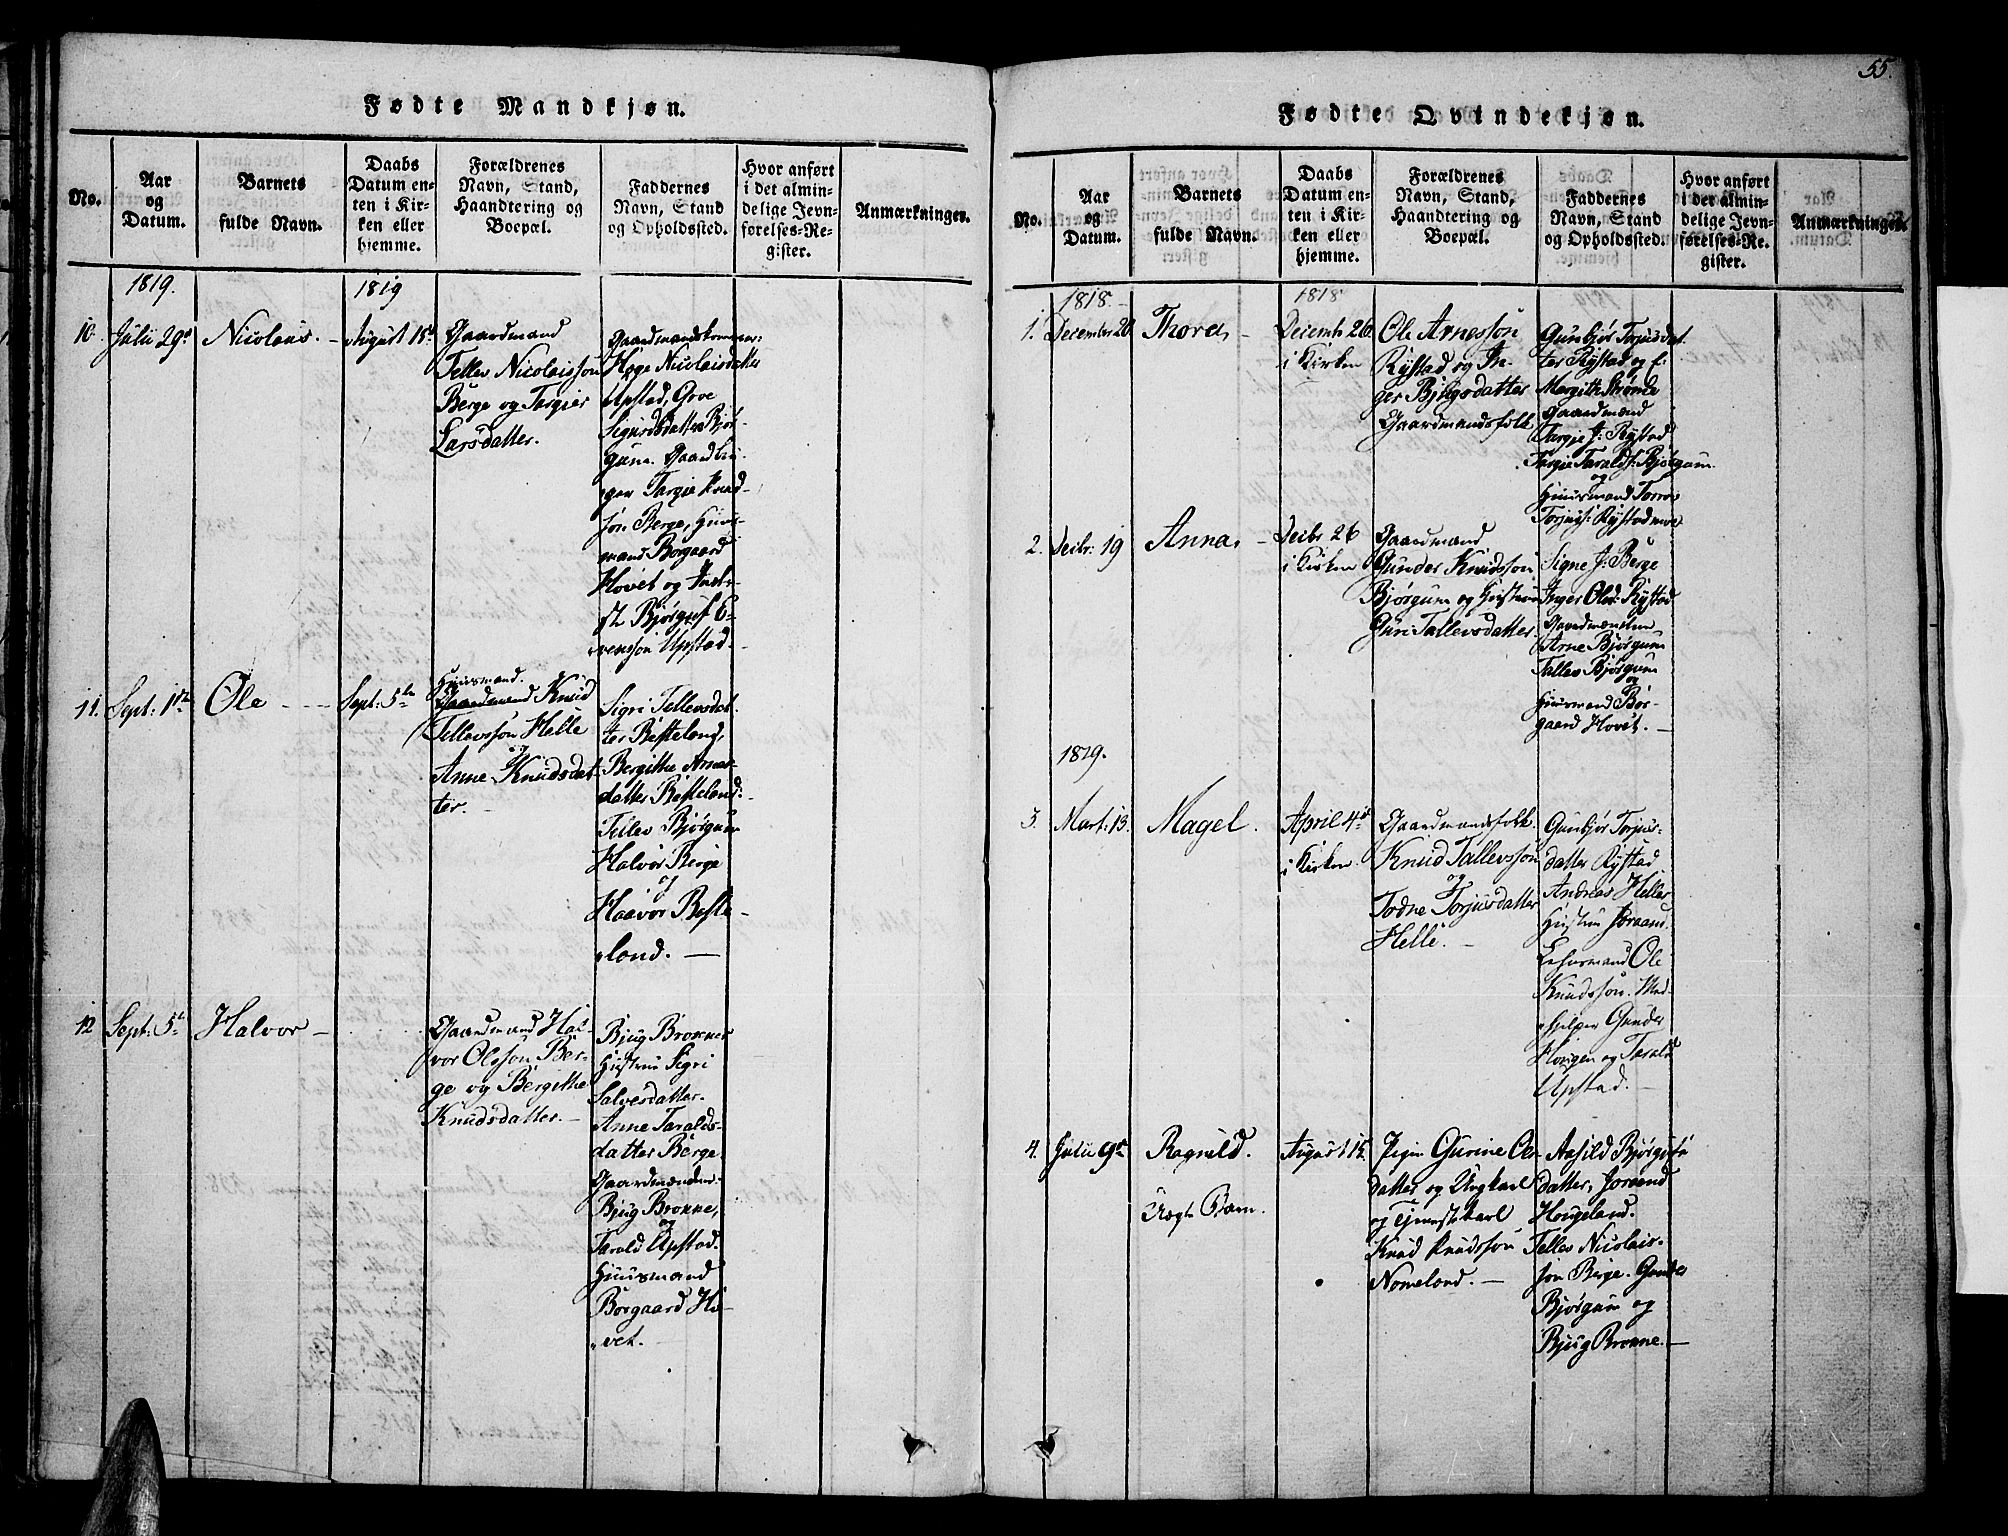 55.
Fødte Mandkjøn.
No.
Aar
og
Datum.
Barnets
fulde Navn.
Daabs
Datum en-
ten i Kir-
ken eller
hjemme.
Forældrenes
Navn, Stand,
Haandtering og
Boepæl.
Faddernes
Navn, Stand
og Opholdssted.
Hvor anført
i det almin-
delige Jevn-
førelses-Re-
gister.
Anmærkninger.
1819.
1819
10.
Julii 29de
Nicolaus.
August 15de
Gaardmand
Tellev Nicolaisson
Berge og Torgier
Larsdatter.
Gaardmandskonner:
Høge Nicolaisdatter
Upstad, Groe
Sigurdsdatter Bjør-
gum. Gaardbru-
ger Targie Knud-
søn Berge, Huus-
mand Borgaard
Hovet og
Bjørguf E-
vensson Upstad.
11.
Sept: 1ste
Ole
Sept: 5te
Huusmand.
Gaardmand Knud
Tellevssøn Helle
og
Anne Knudsdat-
ter.
Sigri Tellevsdat-
ter Besteland,
Bergithe Arnes-
datter Besteland:
Tellev Bjørgum
Halvor Berge
og
Haavor Beste-
land.
12
Sept: 5te
Halvor
Gaardmand Hal-
vor Olssøn Ber-
ge og Bergithe
Knudsdatter.
Bjug Bronnes
Hustrue Sigri
Salvesdatter.
Anne Taralds-
datter Berge
Gaardmændene
Bjug Bronne,
og
Tarald Upstad.
Huusmand
Borgaard Ho-
vet.
Fødte Qvindekjøn.
No.
Aar
og
Datum.
Barnets
fulde Navn.
Daabs
Datum en-
ten i Kir-
ken eller
hjemme.
Forældrenes
Navn, Stand,
Haandtering og
Boepæl.
Faddernes
Navn, Stand
og Opholdssted.
Hvor anført
i det almin-
delige Jevn-
førelses-Re-
gister.
Anmærkninger.
1818.
1818
1.
December 20
Thora
Decemb: 26
i Kirken
Ole Arnesson
Rystad og In-
ger Bjugsdatter
Gaardmandsfolk
Gunbjør Torjusdat
ter Rystad og
Margith Strømde
Gaardmænd
Targie J: Rystad
Targie Taralds: Bjørgum
og
Huusmand Torros
Torjus: Rystadmoe
2.
Decbr: 19
Anna
Decbr 26
i Kirken
Gaardmand
Gunder Knudsson
Bjørgum og Hustrue
Guri Tallevsdatter
Signe J: Berge
Inger Olsd: Rystad
Gaardmændene
Arne Bjørgum
Tallev Bjørgum
og
Huusmand Bor-
gaard Hovet.
1819.
3.
Mart: 13.
Magel.
April 4de
i Kirken
Gaardmandsfolk
Knud Tallevsson
og
Todne Torjusdatter
Helle.
Gunbjør Torjus-
datter Rystad
Andreas Helles
Hustrue Joraand.
Lehnsmand Ole
Knudsson. Med-
hjelper Gunder
Homgen og Tarald
Upstad.
4.
Julii 9de
Ragnild.
Uægte Barn.
August 15
Pigen Gurine Ols
datter og Ungkarl
og Tjenestekarl
Knud Knudssøn
Nomeland.
Aasild Bjørgufs
datter, Joraand
Hougeland.
Tellev Nicolais-
søn Berge. Gunder
Bjørgum og
Bjug Bronne.